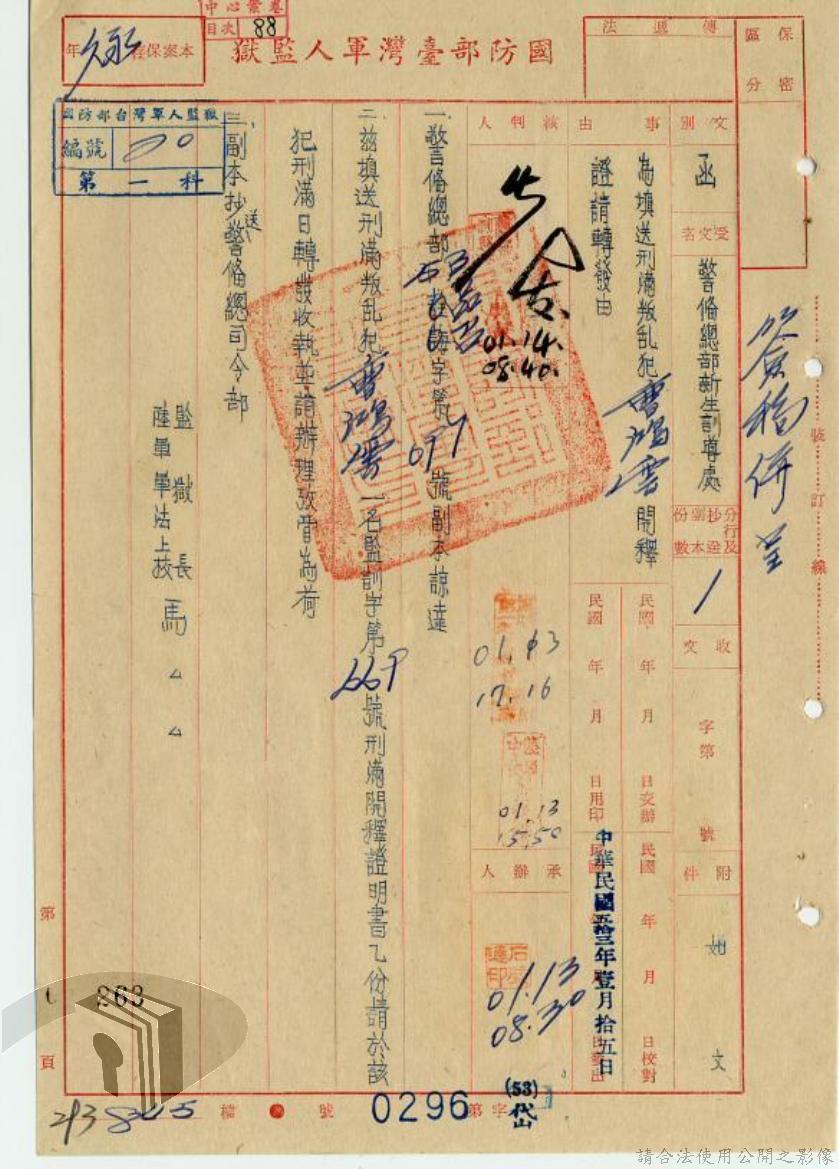 中心彙卷
目次 88
本案保存
年 永
國防部臺灣軍人監獄
傳遞法
保密區分
國防部台灣軍人監獄
編號
第一科
簽稿併呈
文別 函
受文者 警備總部新生訓導處
分行及抄送副本份數 1
收文 字第 號
附件 如文
事由 為填送刑滿叛乱犯曹鴻雲開釋
證請轉發由
民國 年 月 日交辦
民國 年 月 日校對
民國 年 月 日用印
中華民國五十三年壹月拾五日
(53)
核判人
01.14.
08.40.
01.13
17.16
01.13
15.50
承辦人
01.13
08.30
一、警備總部 字第097號副本諒達
二、茲填送刑滿叛乱犯曹鴻雲一名監訓字第669號刑滿開釋證明書乙份請於該
犯刑滿日轉發收執並請辦理考管為荷
三、副本抄送警備總司令部
監獄長
陸軍軍法上校 馬
第 1 頁
263
213 8245
檔 號
0296
字第
裝訂線
請合法使用公開之影像